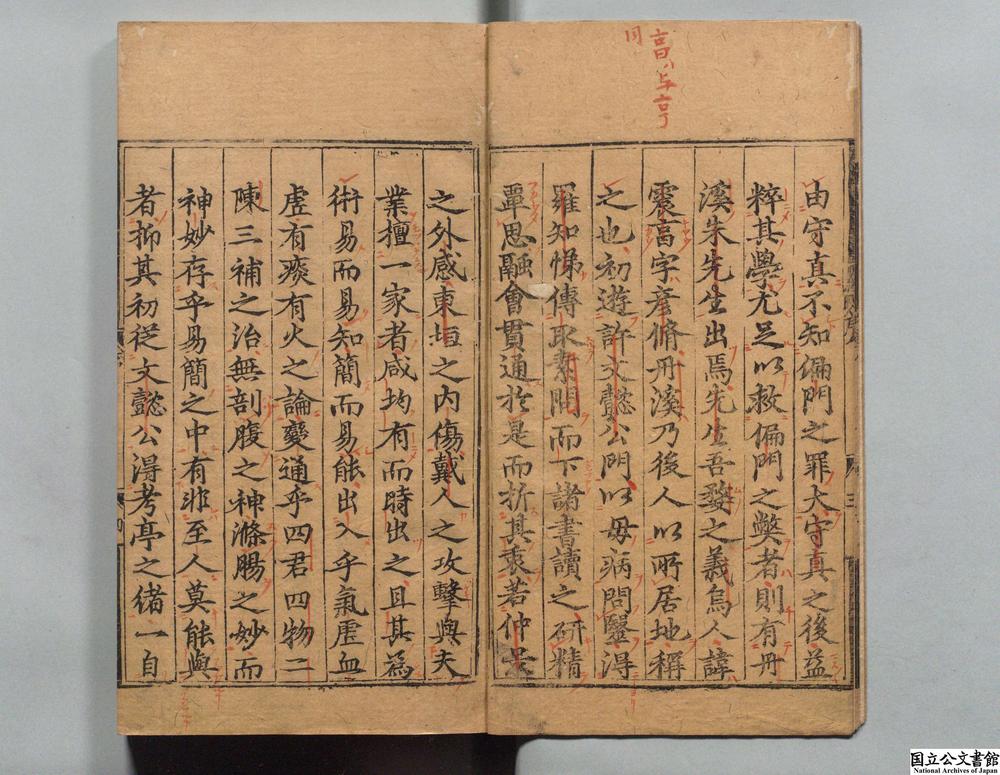 亯ハ与亨
同
由守真不知偏門之罪大守真之後益
粹其學尤足以救偏門之獘者則有丹
溪朱先生出焉先生吾婺之義烏人諱
震亯字彦脩丹溪乃後人以所居地稱
之也初遊許文懿公門以母病問醫得
羅知悌傳取素問而下諸書讀之研精
覃思融會貫通於是而折其衷若仲景
之外感東垣之内傷戴人之攻擊與夫
業擅一家者咸均有而時出之且其為
術易而易知簡而易能出入乎氣虛血
虛有痰有火之論變通乎四君四物二
陳三補之治無剖腹之神滌腸之妙而
神妙存乎易簡之中有非至人莫能與
者抑其初從文懿公得考亭之緒一自
国立公文書館
National Archives of Japan